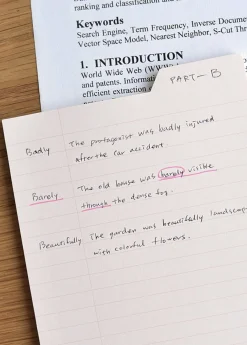 ranking and classification and
Keywords
Search Engine, Term Frequency, Inverse Docume
Vector Space Model, Nearest Neighbor, S-Cut Thr
1. INTRODUCTION
World Wide Web (WWW
and patents. Informati
efficient extraction
PART-B
Badly The protagonist was badly injured
after the car accident.
Barely The old house was barely visible
through the dense fog.
Beautifully The garden was beautifully landscap
with colorful flowers.